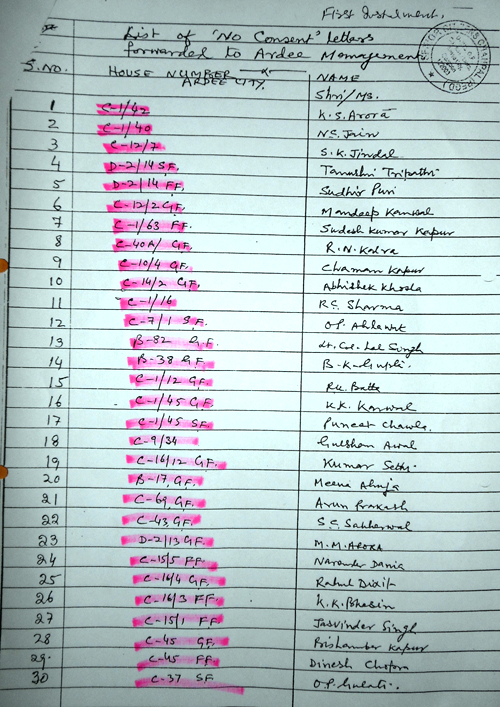 First Instalment.
List of 'No Consent' Letters
forwarded to Ardee Management
S.NO. HOUSE NUMBER ARDEE CITY. NAME
Shri/Ms.
1 C-1/42 K.S. Arora
2 C-1/40 N.C. Jain
3 C-12/7 S.K. Jindal
4 D-2/14 S.F. Tanushri Tripathi
5 D-2/14 F.F. Sudhir Puri
6 C-12/2 G.F. Mandeep Kanwal
7 C-1/63 FF. Sudesh Kumar Kapur
8 C-40A/ G.F. R.N. Kalra
9 C-10/4 G.F. Chaman Kapur
10 C-14/2 G.F. Abhishek Khosla
11 C-1/16 R.C. Sharma
12 C-7/1 S.F. O.P. Ahlawat
13 B-82 G.F. Lt. Col. Lal Singh
14 B-38 G.F. B.K. Gupta.
15 C-1/12 G.F. R.K. Batta
16 C-1/45 G.F. K.K. Kanwal
17 C-1/45 SF. Puneet Chawla.
18 C-9/34 Gulshan
19 C-16/12 G.F. Kumar Sethi.
20 B-17, G.F. Meena Ahuja
21 C-69, G.F. Arun Prakash
22 C-43, G.F. S.C. Sabherwal
23 D-2/13 G.F. M.M. Arora
24 C-15/5 FF. Narender Dania
25 C-16/4 G.F. Rahul Dixit
26 C-16/3 FF. K.K. Bhasin
27 C-15/1 FF Jasvinder Singh
28 C-45 G.F. Brishamber Kapur
29. C-45 FF. Dinesh Chopra
30 C-37 SF O.P. Gulati.